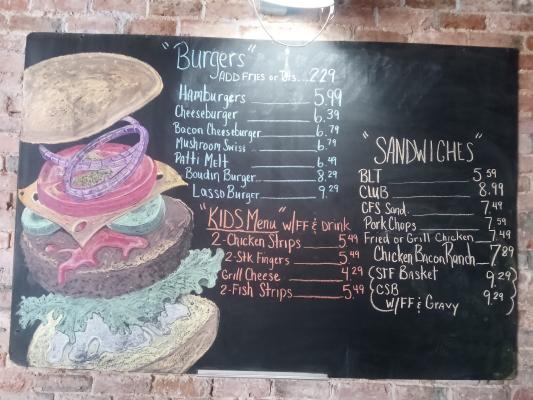 "Burgers"
ADD FRIES or Tots...2.29
Hamburgers 5.99
Cheeseburger 6.39
Bacon Cheeseburger 6.79
Mushroom Swiss 6.79
Patti Melt 6.49
Boudin Burger 8.29
Lasso Burger 9.29
"KIDS Menu" W/FF & Drink
2-Chicken Strips 5.49
2-Stk Fingers 5.49
Grill Cheese 4.29
2-Fish Strips 5.49
"SANDWICHES"
BLT 5.59
CLUB 8.99
CFS Sand. 7.49
Pork Chops 7.59
Fried or Grill Chicken 7.49
Chicken Bacon Ranch 7.89
(STF Basket 9.29
CSB 9.29
W/FF & Gravy)